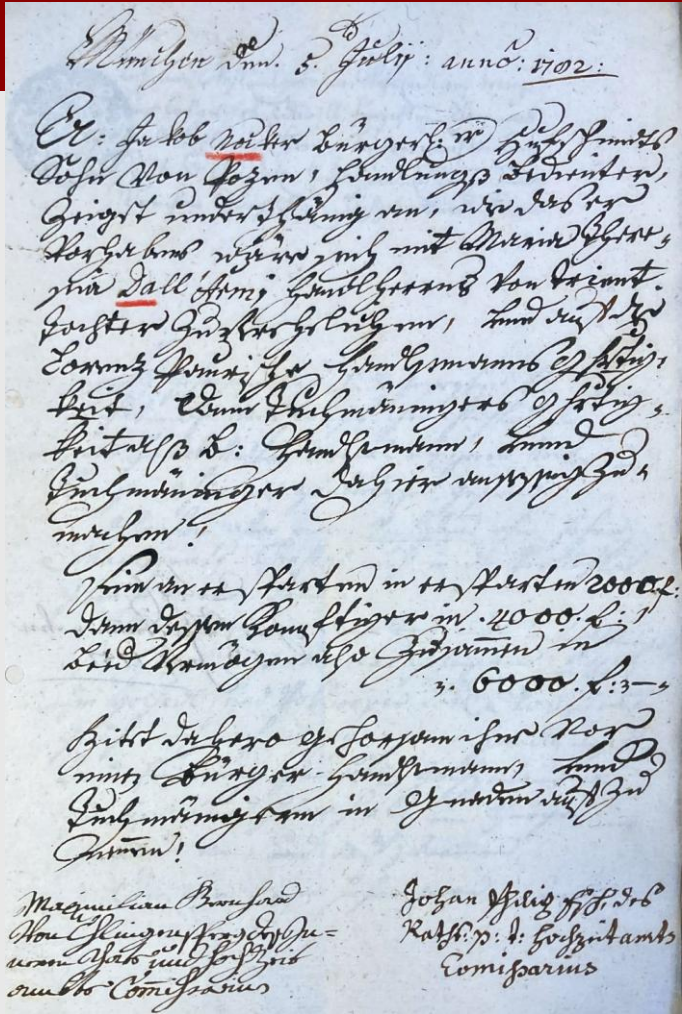 München den. 5. Julij: anno: 1702:
Er: Jakob Noker bürgerl: Huefschmidts
Sohn von Pozen, Handlungs Bedienter,
Zeigt underthänig an, wie das er
Vorhabens wäre sich mit Maria There-
sia Dall'Armj Handlherrns von Trient
Tochter zuverehelichen, und auf die
Lorenz Paurische Handlsmanns Ghrtig-
keit, dann Tuchmäningers Ghrtig-
keit alß B: Handlsmann, und
Tuchmäninger dahier ansessig zu-
machen!
Sein an ersparten in ersparten 2000 f:
dann dessen Konftiger in . 4000. f:
beed Vermögen also zusammen in
6000. f:
Bittet dahero gehorsam ihne vor
einen Bürger Handlsmann, und
Tuchmäningern in Gnaden auf zu
nemmen!
Maximilian Bernhard
von Chlingensperg des In-
nern Raths und Hochzeit
ambts Commissarius
Johan Philip des
Raths. p: t: Hochzeitamts
Comissarius